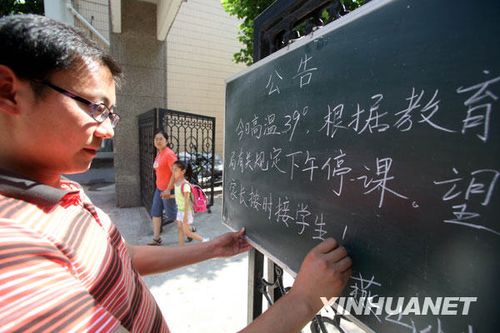 公告
今日高温39°，根据教育
局有关规定下午停课。望
家长按时接学生！
XINHUANET